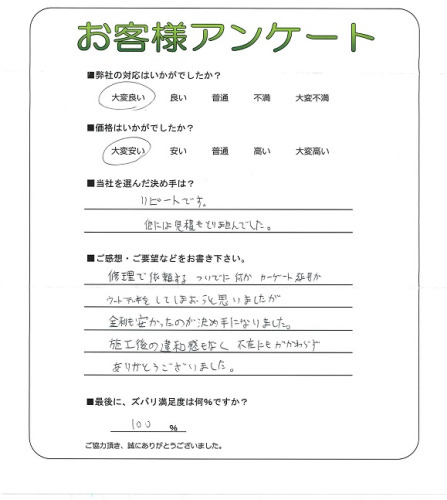 お客様アンケート
■弊社の対応はいかがでしたか？
大変良い 良い 普通 不満 大変不満
■価格はいかがでしたか？
大変安い 安い 普通 高い 大変高い
■当社を選んだ決め手は？
リピートです。
他には見積もとり組んでした。
■ご感想・ご要望などをお書き下さい。
修理で依頼する ついでに何か カーゲート
してしまおうと思いましたが
金利も安かったのが決め手になりました。
施工後の違和感もなく 不在にもかかわらず
ありがとうございました。
■最後に、ズバリ満足度は何％ですか？
100 ％
ご協力頂き、誠にありがとうございました。